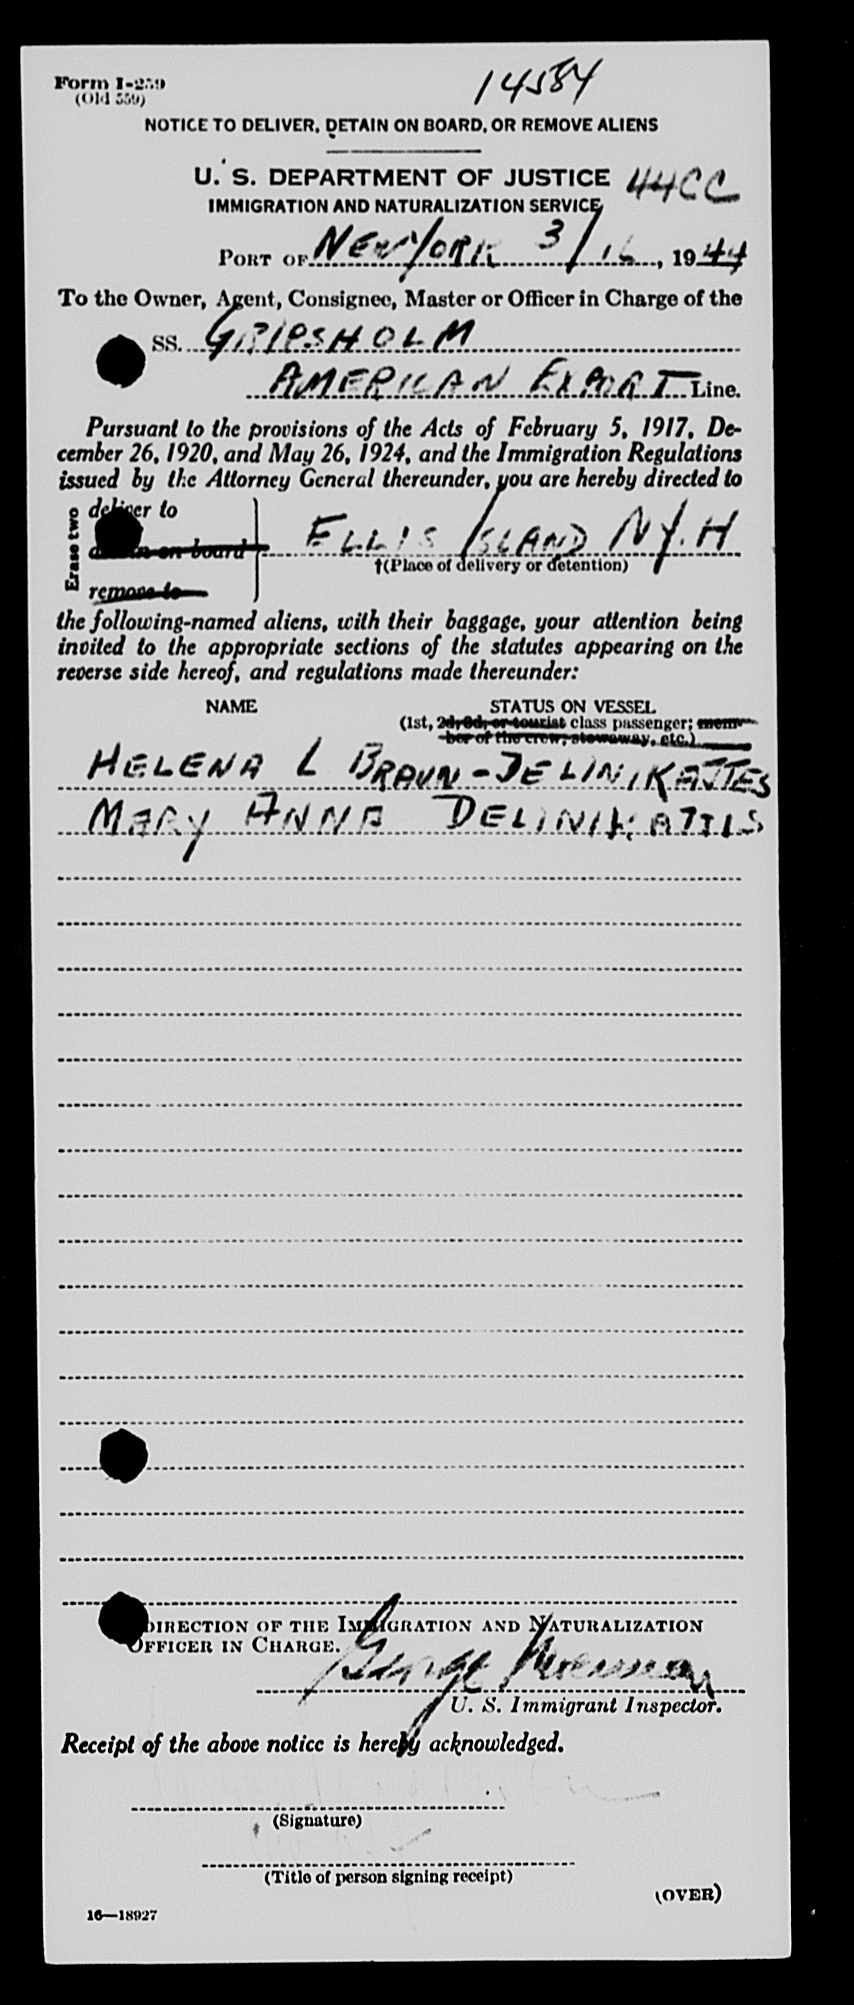 Form I-259
(Old 559)
14584
NOTICE TO DELIVER, DETAIN ON BOARD, OR REMOVE ALIENS
U. S. DEPARTMENT OF JUSTICE 44CC
IMMIGRATION AND NATURALIZATION SERVICE
PORT OF NEW YORK 3/16, 1944
To the Owner, Agent, Consignee, Master or Officer in Charge of the
SS. GRIPSHOLM
AMERICAN EXPORT Line.
Pursuant to the provisions of the Acts of February 5, 1917, De-
cember 26, 1920, and May 26, 1924, and the Immigration Regulations
issued by the Attorney General thereunder, you are hereby directed to
Erase two
deliver to
detain on board
ELLIS ISLAND NY. H
†(Place of delivery or detention)
remove to
the following-named aliens, with their baggage, your attention being
invited to the appropriate sections of the statutes appearing on the
reverse side hereof, and regulations made thereunder:
NAME STATUS ON VESSEL
(1st, 2d, 3d, or tourist class passenger; mem-
ber of the crew, stowaway, etc.)
HELENA L BRAUN-DELINIKAJTES
MARY ANNA DELINIKAITIS
DIRECTION OF THE IMMIGRATION AND NATURALIZATION
OFFICER IN CHARGE.
George
U. S. Immigrant Inspector.
Receipt of the above notice is hereby acknowledged.
(Signature)
(Title of person signing receipt)
(OVER)
16—18927